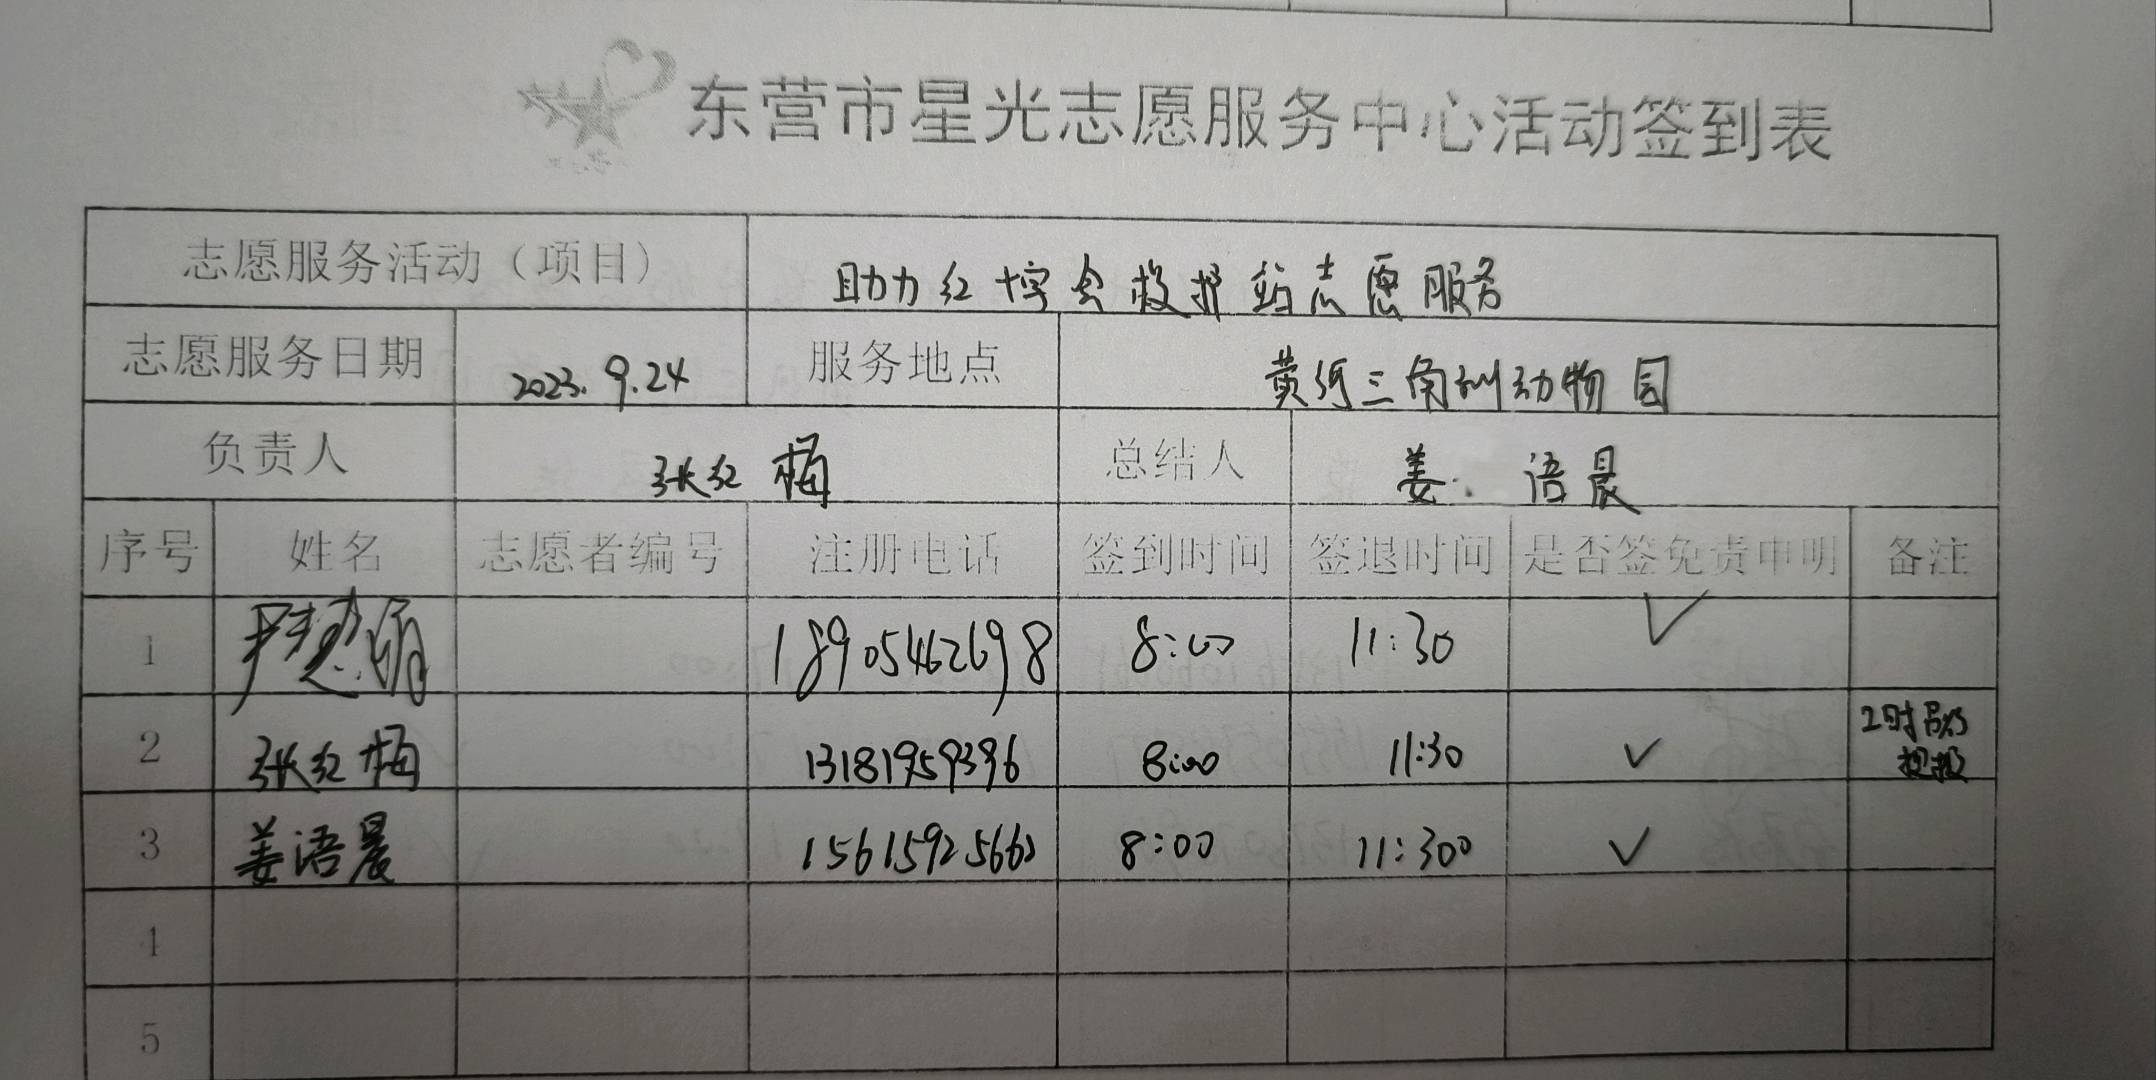 东营市星光志愿服务中心活动签到表
志愿服务活动（项目） 助力红十字会救护站志愿服务
志愿服务日期 2023.9.24 服务地点 黄河三角洲动物园
负责人 张红梅 总结人 姜语晨
序号 姓名 志愿者编号 注册电话 签到时间 签退时间 是否签免责申明 备注
1 18905462698 8:00 11:30 ✓
2 张红梅 13181959396 8:00 11:30 ✓ 2时
3 姜语晨 15615925662 8:00 11:300 ✓
4
5